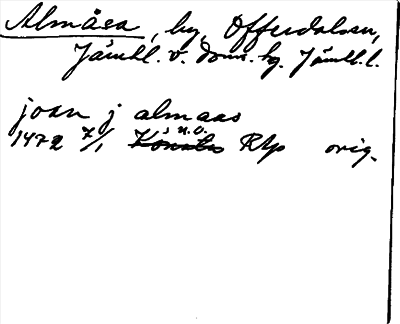 Almåsa, by, Offerdals sn,
Jämtl. v. doms. hg. Jämtl. l.
joan j almaas
1472 7/1 n.o. Rhp orig.